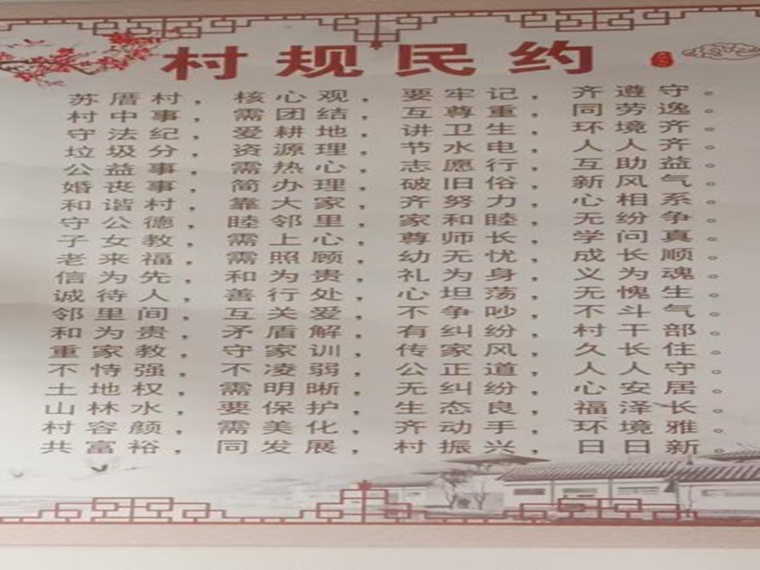 村规民约
苏厝村，核心观，要牢记，齐遵守。
村中事，需团结，互尊重，同劳逸。
守法纪，爱耕地，讲卫生，环境齐。
垃圾分，资源理，节水电，人人齐。
公益事，需热心，志愿行，互助益。
婚丧事，简办理，破旧俗，新风气。
和谐村，靠大家，齐努力，心相系。
守公德，睦邻里，家和睦，无纷争。
子女教，需上心，尊师长，学问真。
老来福，需照顾，幼无忧，成长顺。
信为先，和为贵，礼为身，义为魂。
诚待人，善行处，心坦荡，无愧生。
邻里间，互关爱，不争吵，不斗气。
和为贵，矛盾解，有纠纷，村干部。
重家教，守家训，传家风，久长住。
不恃强，不凌弱，公正道，人人守。
土地权，需明晰，无纠纷，心安居。
山林水，要保护，生态良，福泽长。
村容颜，需美化，齐动手，环境雅。
共富裕，同发展，村振兴，日日新。